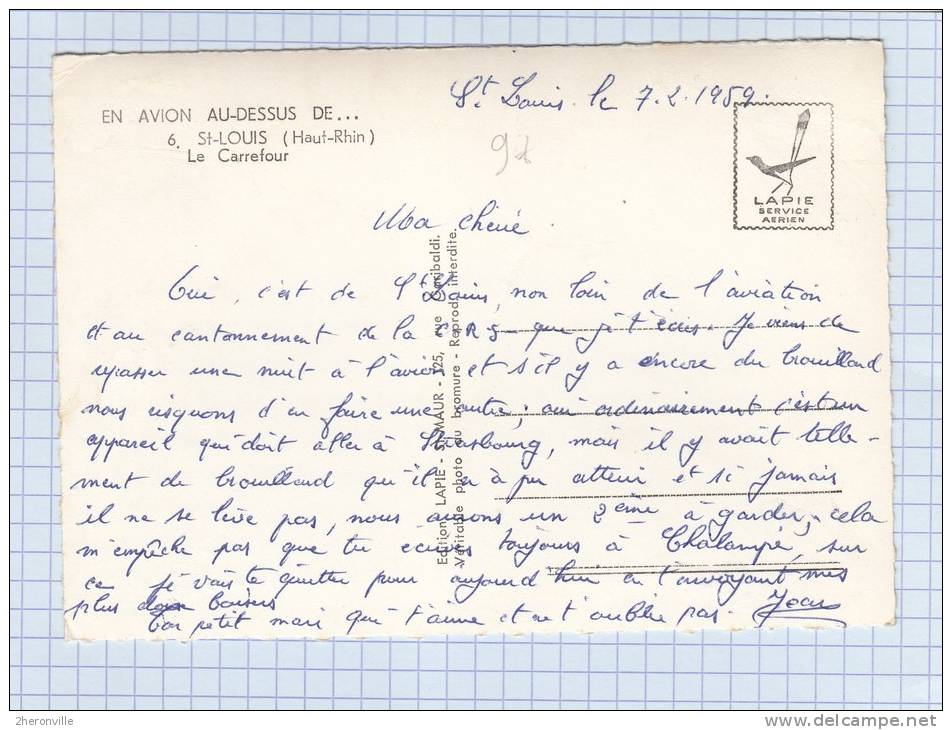 St Louis le 7.2.1959.
EN AVION AU-DESSUS DE...
6. St-LOUIS (Haut-Rhin)
Le Carrefour
97
LAPIE
SERVICE
AERIEN
Ma chérie
Oui, c'est de St Louis, non loin de l'aviation
et au cantonnement de la C R S que je t'écris. Je viens de
repasser une nuit à l'avion et s'il y a encore du brouillard
nous risquons d'en faire une autre; ordinairement c'est un
appareil qui doit aller à Strasbourg, mais il y avait telle-
ment de brouillard qu'il a pu atterir et si jamais
il ne se lève pas, nous aurons un 2ème à garder, cela
m'empêche pas que tu écrives toujours à Chalampé, sur
ce je vais te quitter pour aujourd'hui en t'envoyant mes
plus doux baisers
ton petit mari qui t'aime et ne t'oublie pas. Jean
Editions LAPIE - St-MAUR - 125, rue Garibaldi.
Véritable photo au bromure - Reproduction interdite.
2heronville
www.delcampe.net